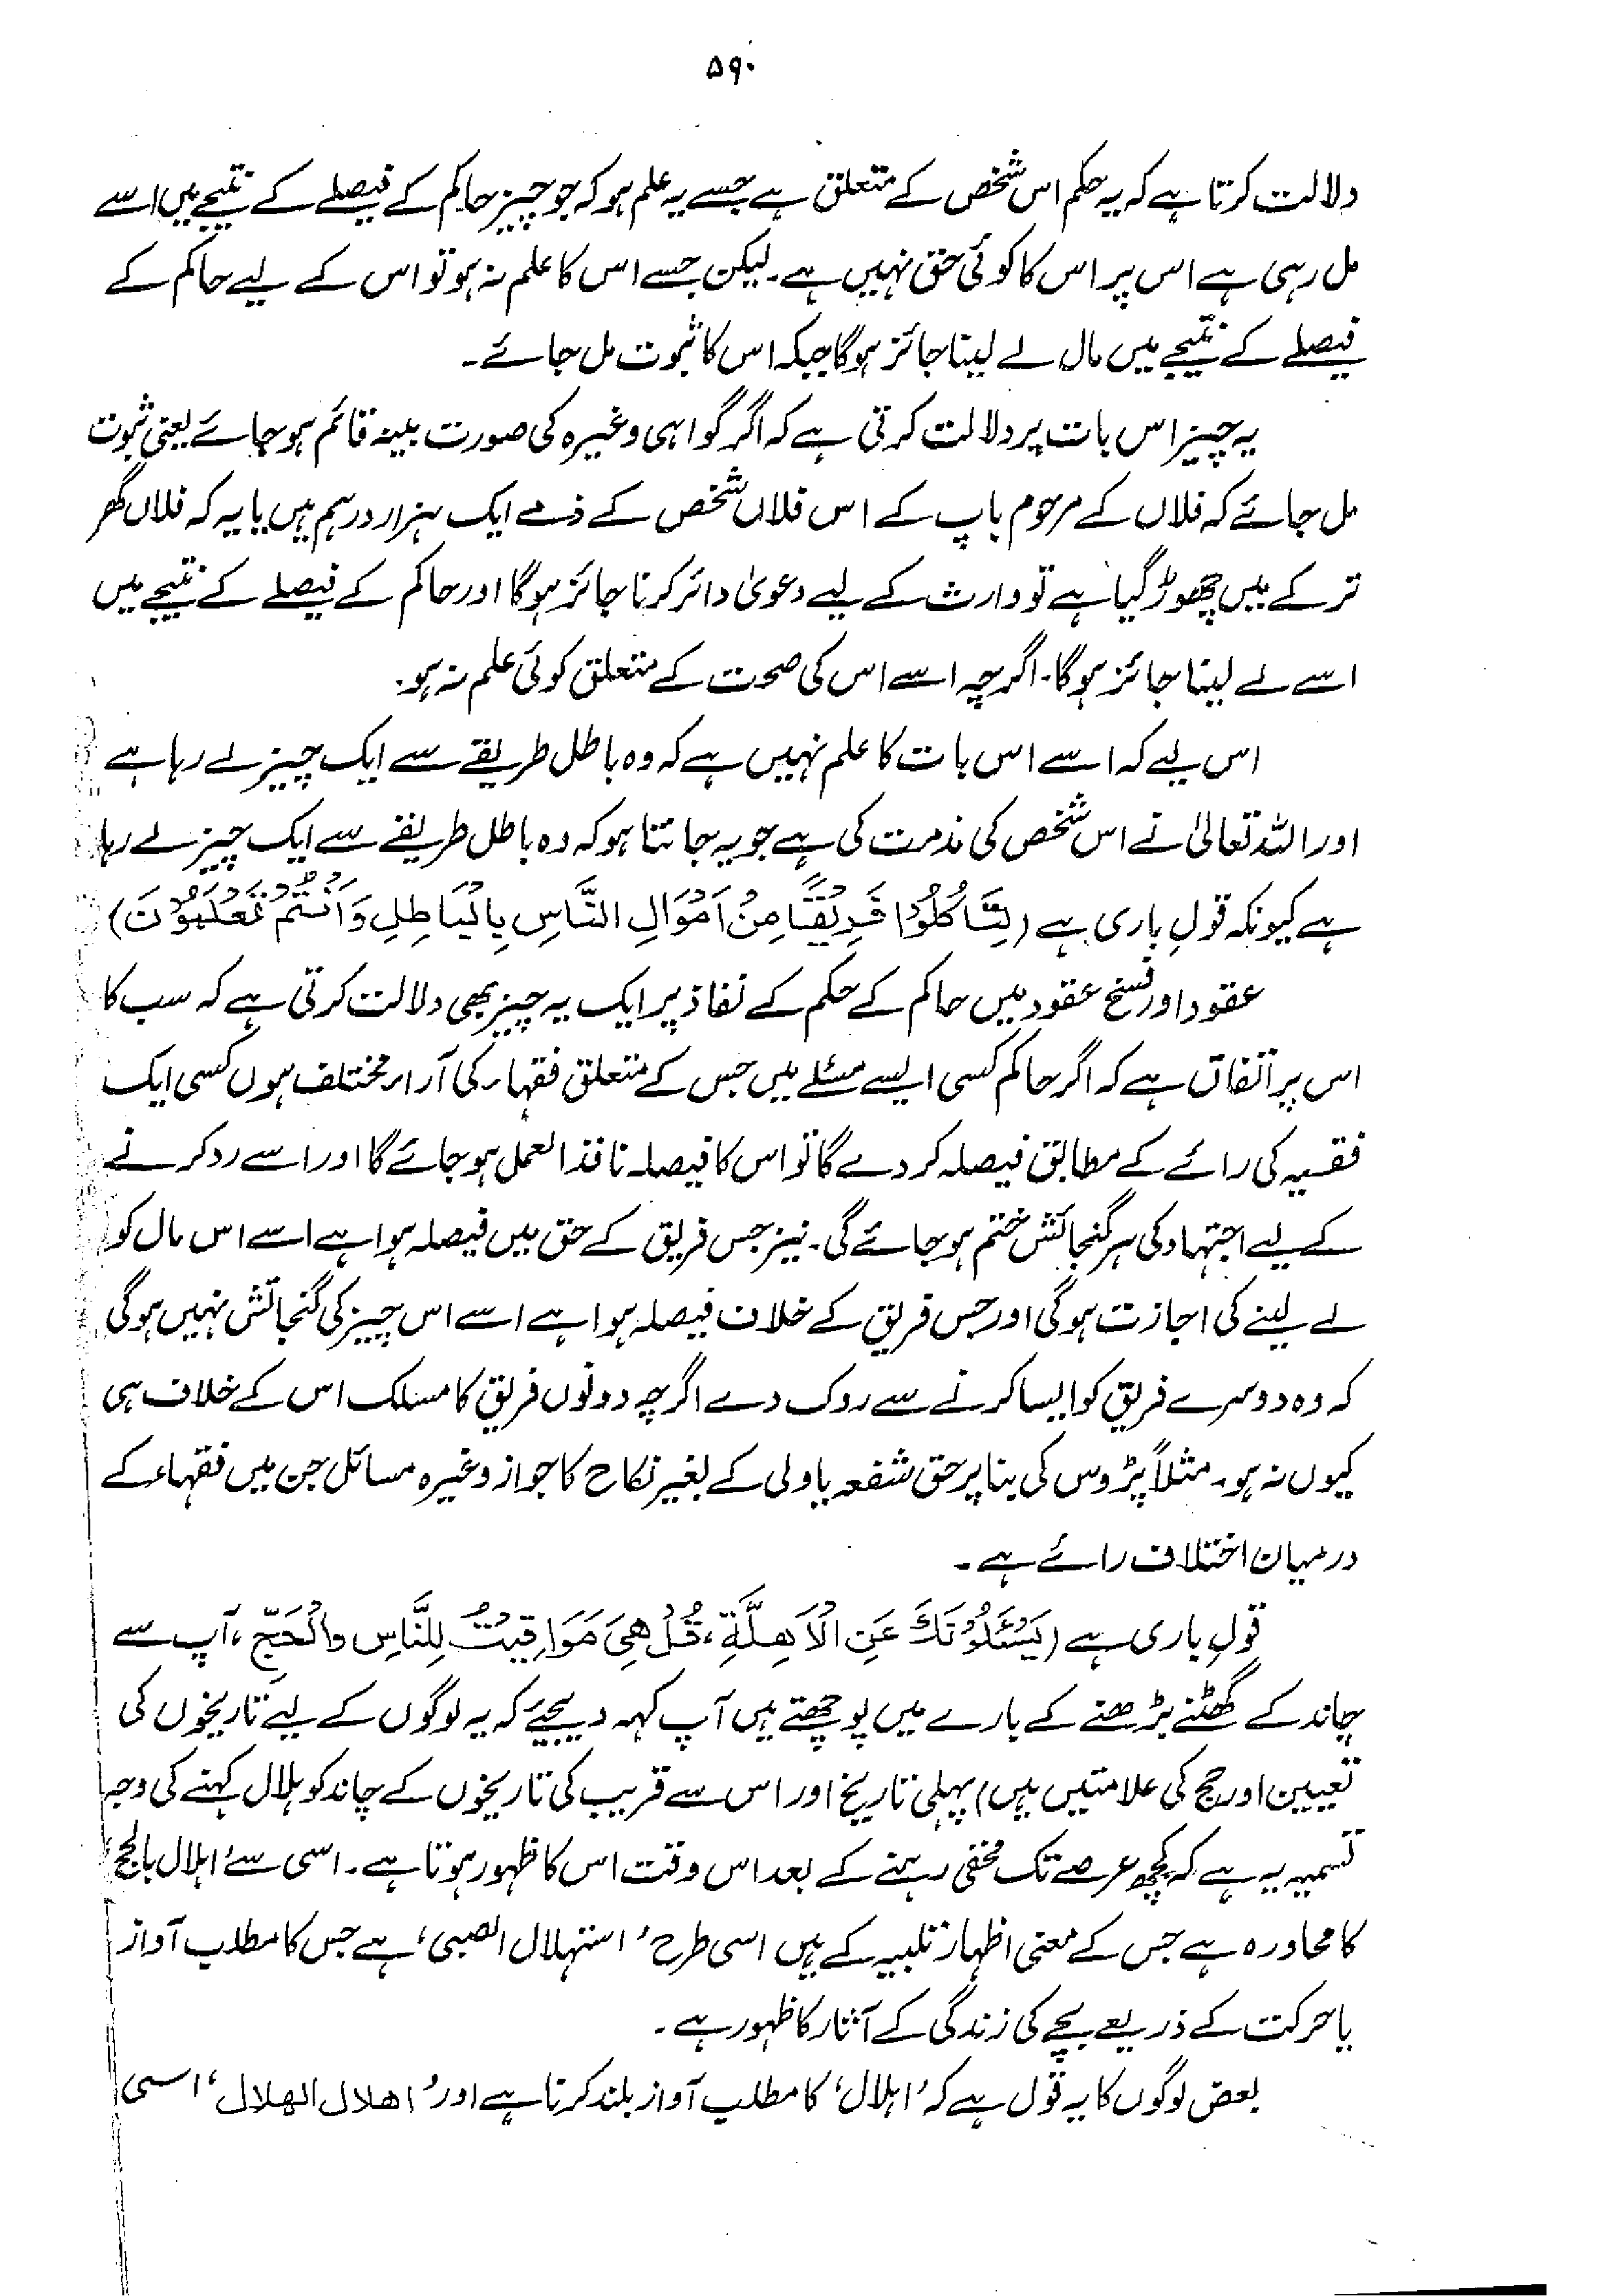 ۵۹۰
دلالت کرتا ہے کہ یہ حکم اس شخص کے متعلق ہے جسے یہ علم ہو کہ جو چیز حاکم کے فیصلے کے نتیجے میں اسے
مل رہی ہے اس پر اس کا کوئی حق نہیں ہے۔ لیکن جسے اس کا علم نہ ہو تو اس کے لیے حاکم کے
فیصلے کے نتیجے میں مال لے لینا جائز ہوگا جبکہ اس کا ثبوت مل جائے۔
یہ چیز اس بات پر دلالت کرتی ہے کہ اگر گواہی وغیرہ کی صورت بینہ قائم ہو جائے یعنی ثبوت
مل جائے کہ فلاں کے مرحوم باپ کے اس فلاں شخص کے ذمے ایک ہزار درہم ہیں یا یہ کہ فلاں گھر
ترکے میں چھوڑ گیا ہے تو وارث کے لیے دعویٰ دائر کرنا جائز ہوگا اور حاکم کے فیصلے کے نتیجے میں
اسے لے لینا جائز ہوگا۔ اگرچہ اسے اس کی صحت کے متعلق کوئی علم نہ ہو۔
اس لیے کہ اسے اس بات کا علم نہیں ہے کہ وہ باطل طریقے سے ایک چیز لے رہا ہے
اور اللہ تعالیٰ نے اس شخص کی مذمت کی ہے جو یہ جانتا ہو کہ وہ باطل طریقے سے ایک چیز لے رہا
ہے کیونکہ قولِ باری ہے (لِتَأْكُلُوْا فَرِيْقًا مِنْ اَمْوَالِ النَّاسِ بِالْبَاطِلِ وَاَنْتُمْ تَعْلَمُوْنَ)
عقود اور فسخ عقود میں حاکم کے حکم کے نفاذ پر ایک یہ چیز بھی دلالت کرتی ہے کہ سب کا
اس پر اتفاق ہے کہ اگر حاکم کسی ایسے مسئلے میں جس کے متعلق فقہاء کی آراء مختلف ہوں کسی ایک
فقیہ کی رائے کے مطابق فیصلہ کر دے گا تو اس کا فیصلہ نافذ العمل ہو جائے گا اور اسے رد کرنے
کے لیے اجتہاد کی ہر گنجائش ختم ہو جائے گی۔ نیز جس فریق کے حق میں فیصلہ ہوا ہے اسے اس مال کو
لے لینے کی اجازت ہوگی اور جس فریق کے خلاف فیصلہ ہوا ہے اسے اس چیز کی گنجائش نہیں ہوگی
کہ وہ دوسرے فریق کو ایسا کرنے سے روک دے اگرچہ دونوں فریق کا مسلک اس کے خلاف ہی
کیوں نہ ہو۔ مثلاً پڑوس کی بنا پر حق شفعہ یا ولی کے بغیر نکاح کا جواز وغیرہ مسائل جن میں فقہاء کے
درمیان اختلاف رائے ہے۔
قولِ باری ہے (يَسْئَلُوْنَكَ عَنِ الْاَهِلَّةِ، قُلْ هِيَ مَوَاقِيْتُ لِلنَّاسِ وَالْحَجِّ، آپ سے
چاند کے گھٹنے بڑھنے کے بارے میں پوچھتے ہیں آپ کہہ دیجیئے کہ یہ لوگوں کے لیے تاریخوں کی
تعیین اور حج کی علامتیں ہیں) پہلی تاریخ اور اس سے قریب کی تاریخوں کے چاند کو ہلال کہنے کی وجہ
تسمیہ یہ ہے کہ کچھ عرصے تک مخفی رہنے کے بعد اس وقت اس کا ظہور ہوتا ہے۔ اسی سے 'اہلال بالحج'
کا محاورہ ہے جس کے معنی اظہار تلبیہ کے ہیں اسی طرح 'استہلال الصبی' ہے جس کا مطلب آواز
یا حرکت کے ذریعے بچے کی زندگی کے آثار کا ظہور ہے۔
بعض لوگوں کا یہ قول ہے کہ 'اہلال' کا مطلب آواز بلند کرنا ہے اور 'اهلال الهلال' اسی